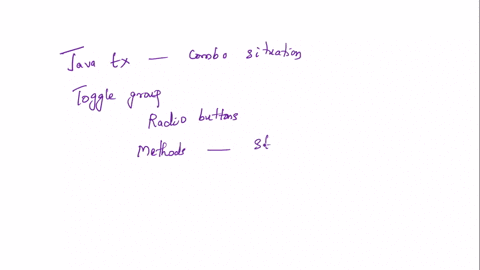 Java fx — Combo situation
Toggle group
Radio buttons
Methods — st